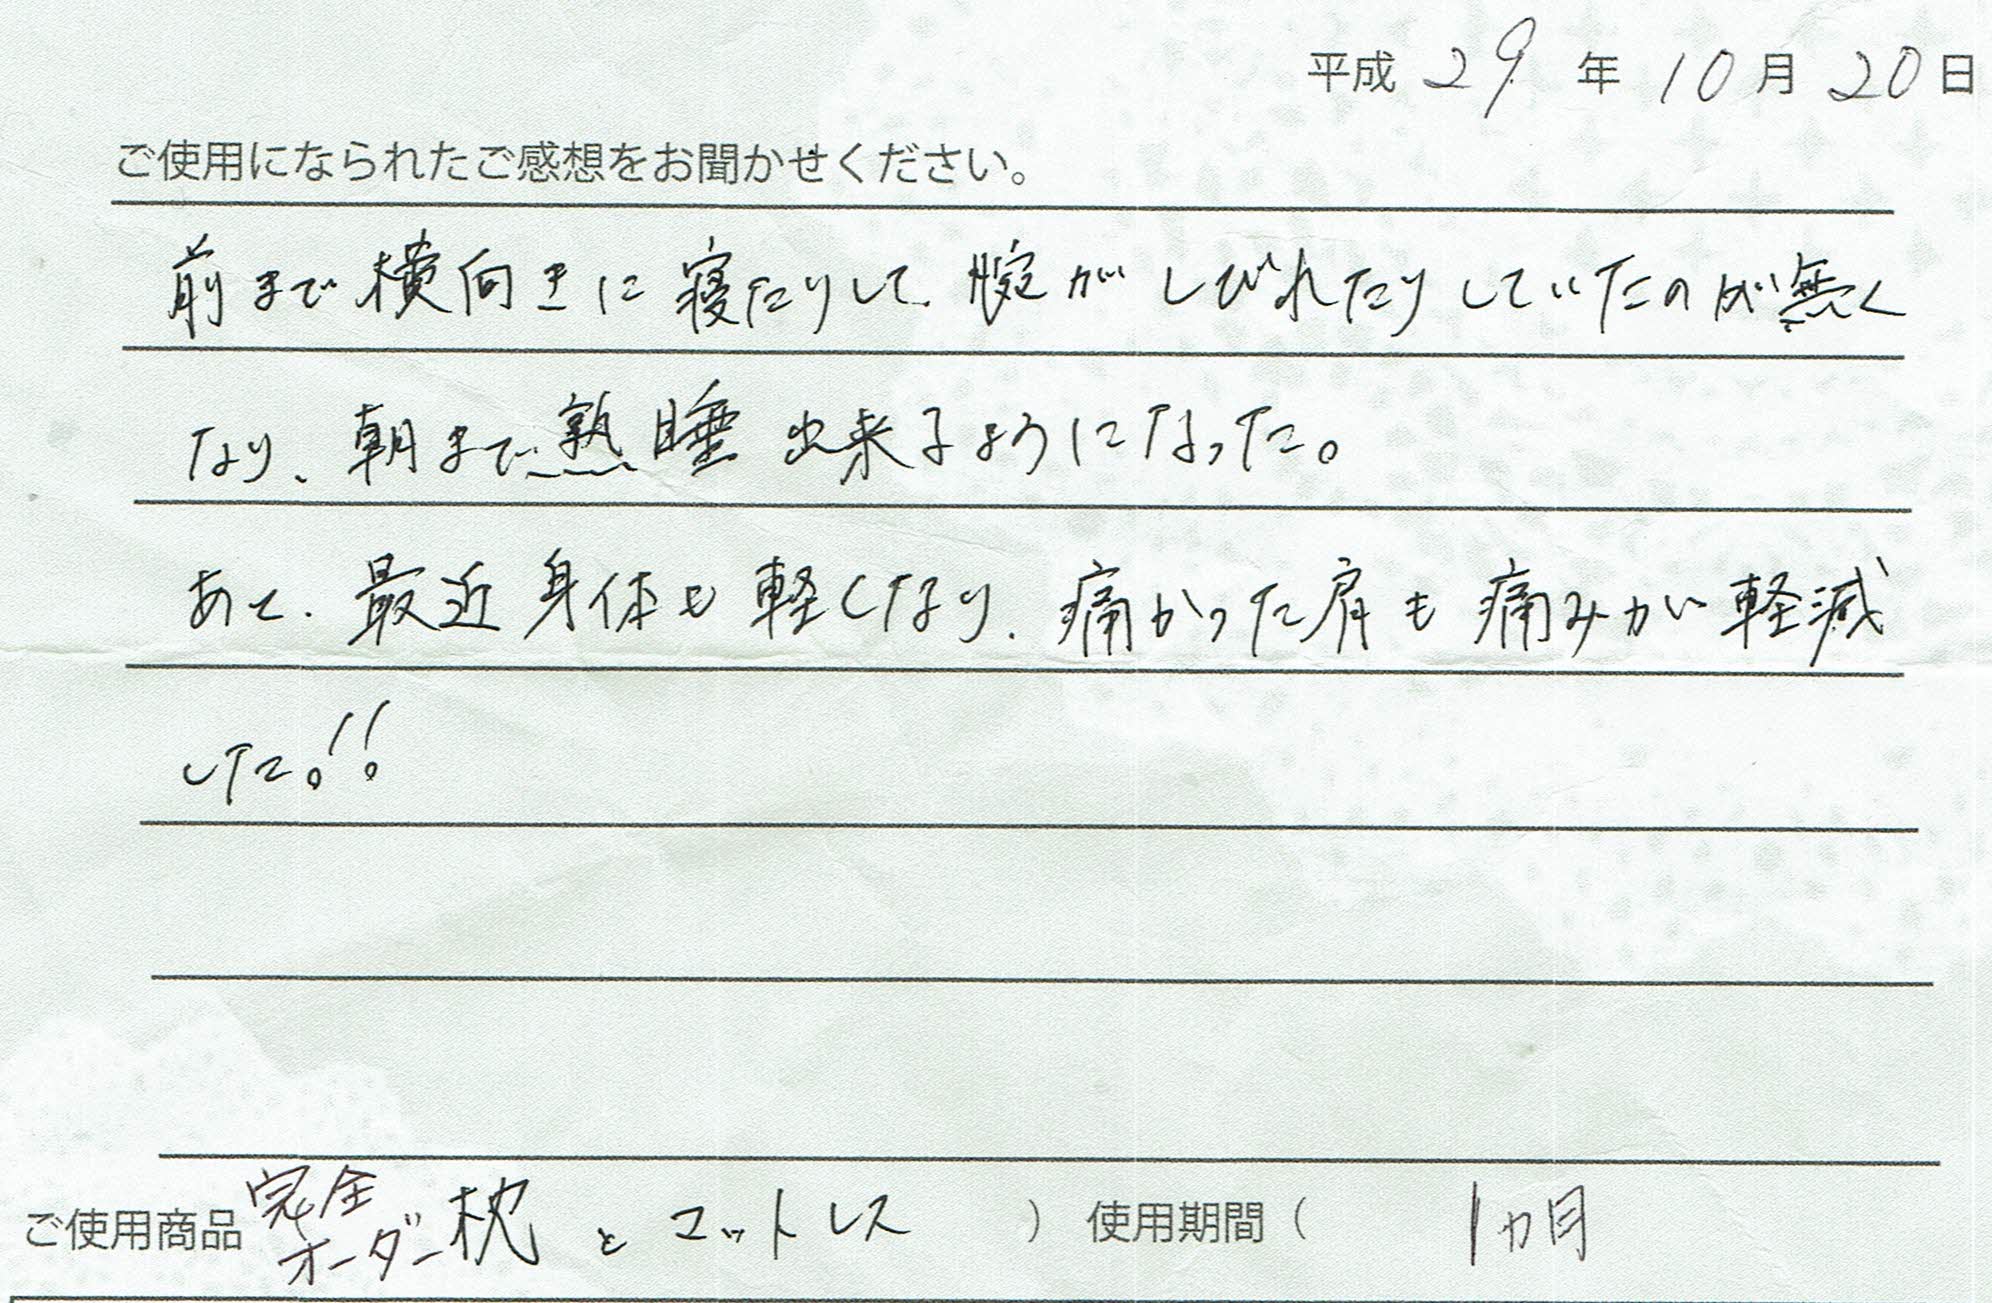 平成 29 年 10 月 20 日
ご使用になられたご感想をお聞かせください。
前まで横向きに寝たりして、腕がしびれたりしていたのが無く
なり、朝まで熟睡出来るようになった。
あと、最近身体も軽くなり、痛かった肩も痛みが軽減
した。!!
ご使用商品 完全オーダー枕とマットレス ） 使用期間（ 1ヵ月